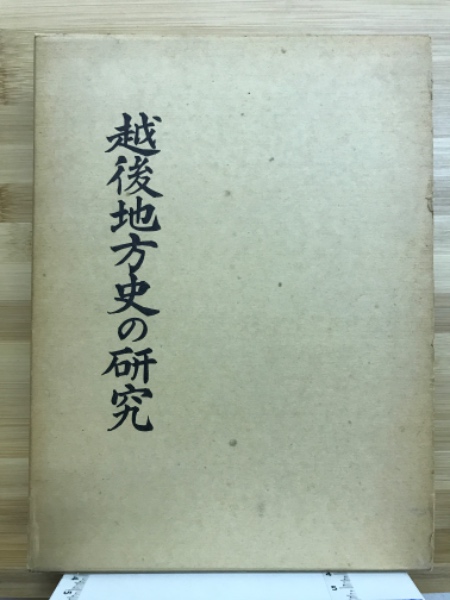 越後地方史の研究